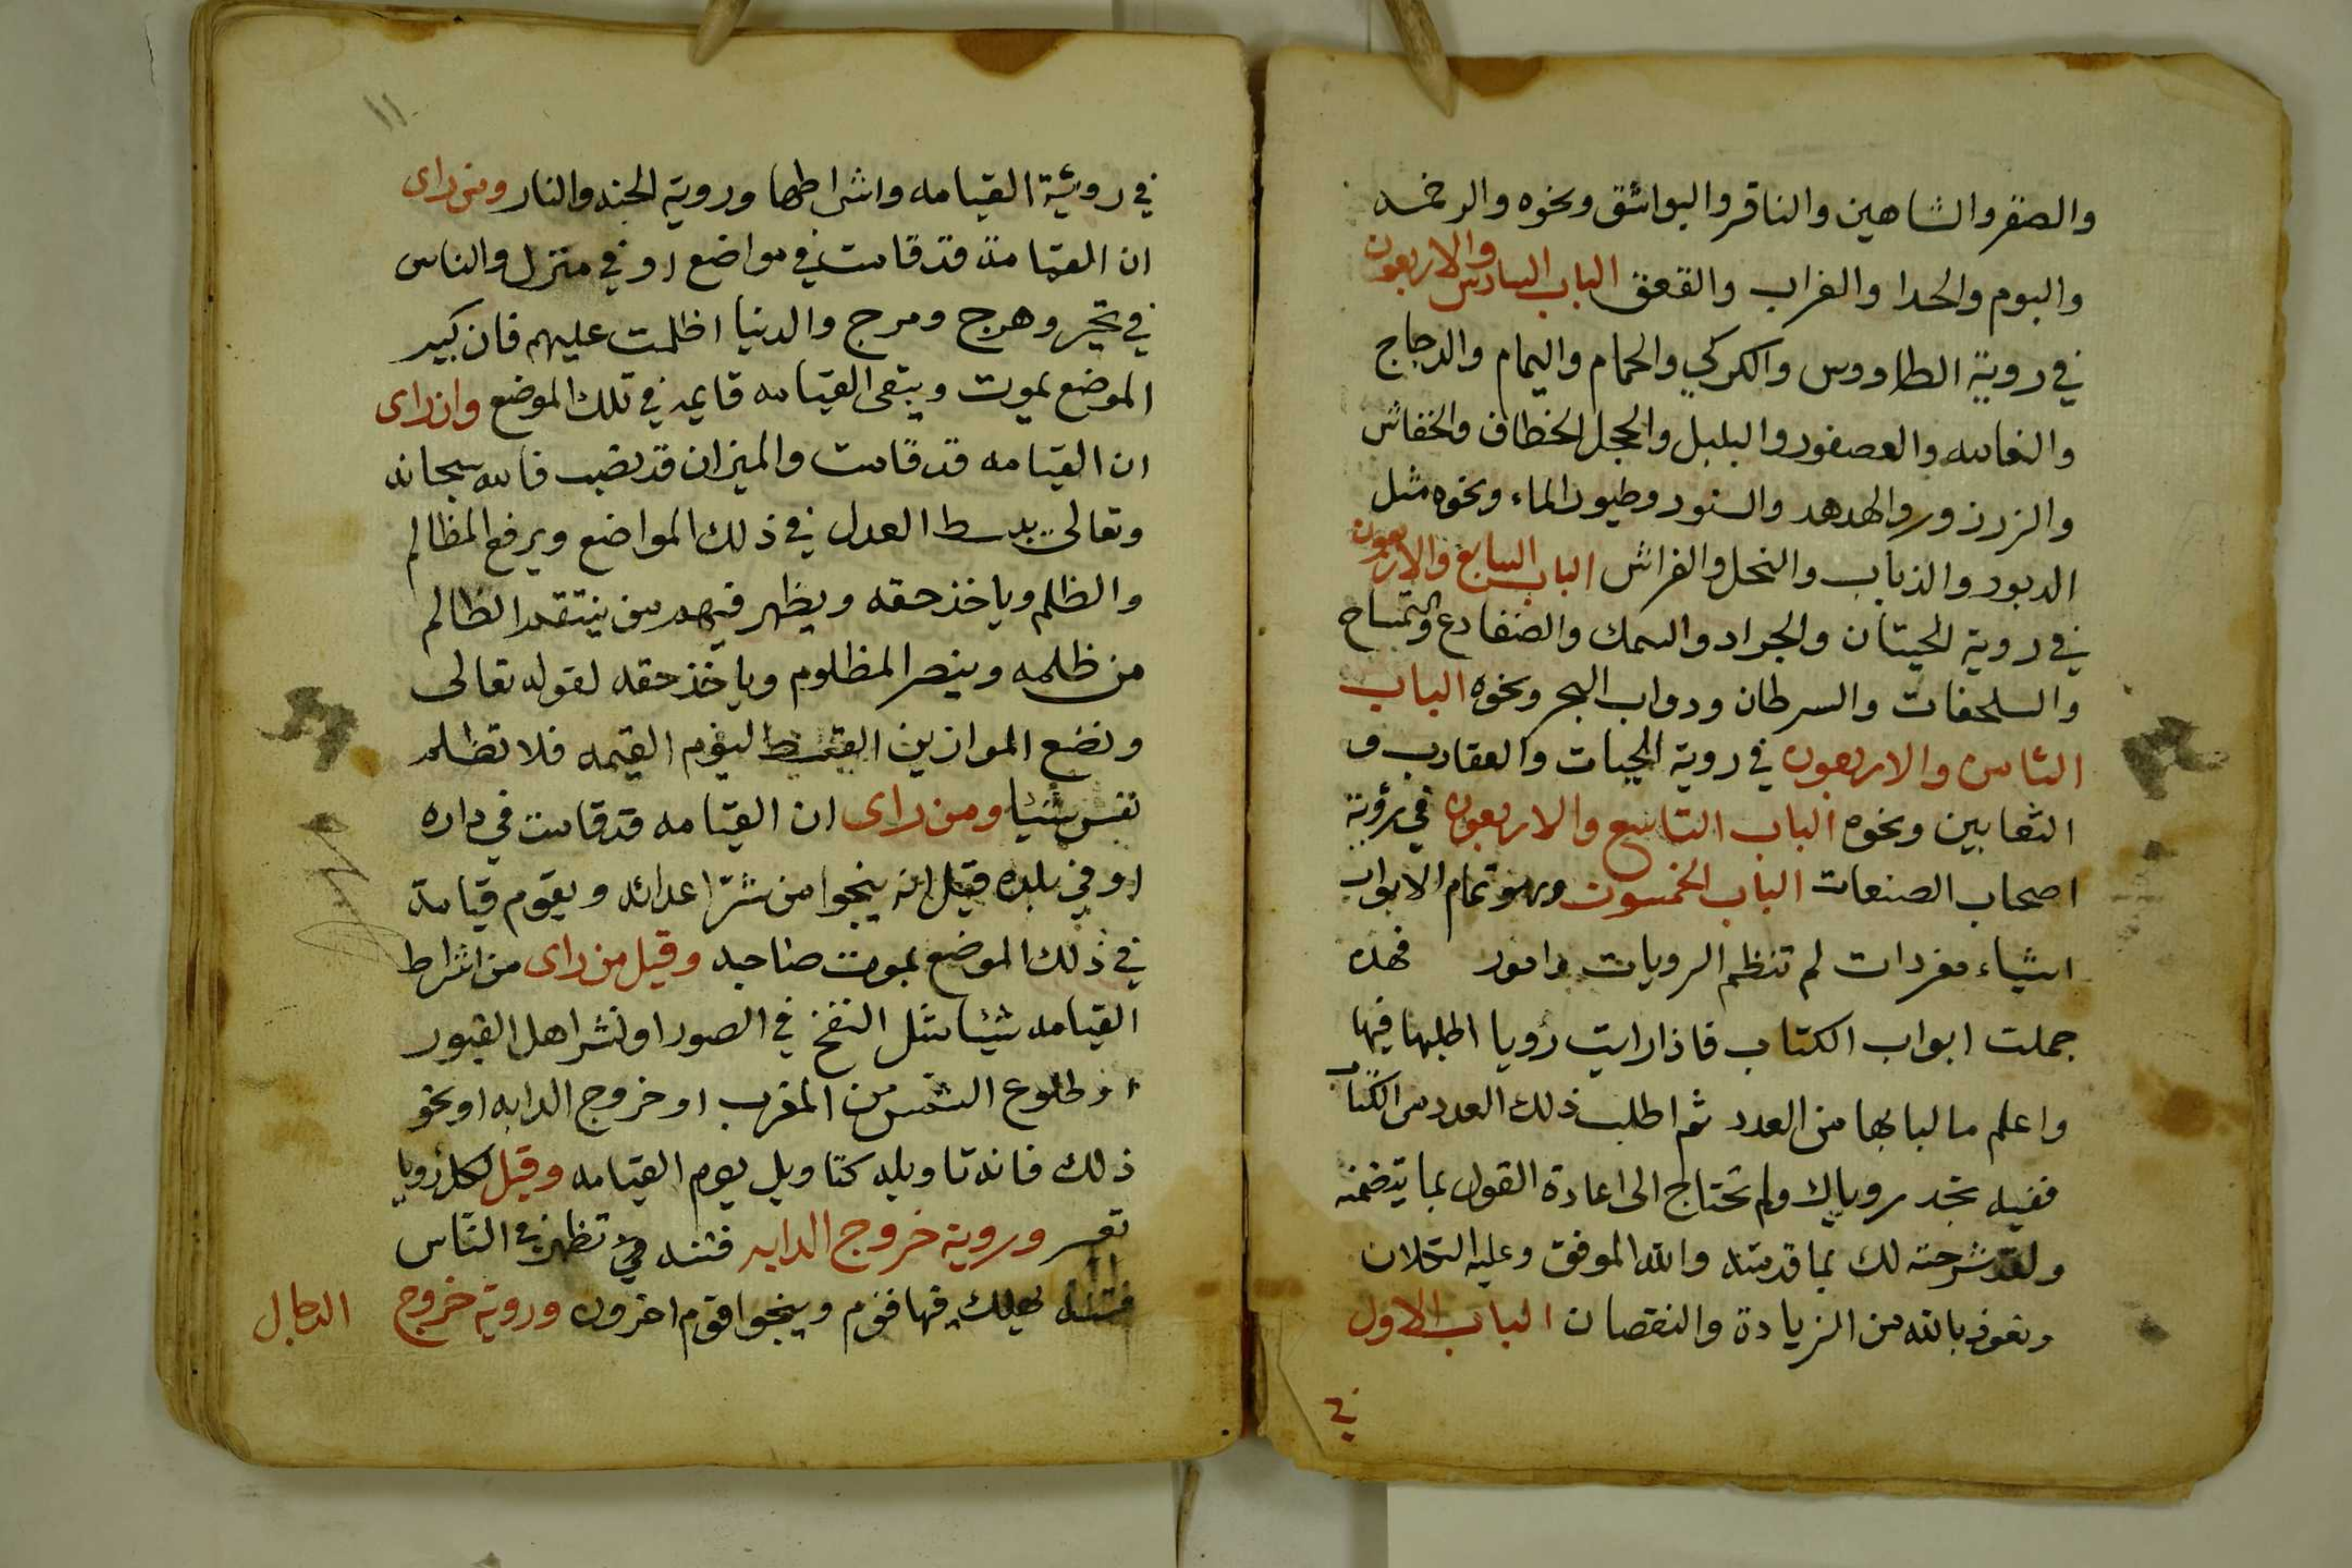 والصقر والشاهين والناقر والبواشق ونحوه والرخمه
والبوم والحدا والغراب والقعقق الباب السادس والاربعون
في روية الطاووس والكركي والحمام واليمام والدجاج
والنعامه والعصفور والبلبل والحجل الخطاف والخفاش
والزرزور والهدهد والسنور وطيور الماء ونحوه مثل
الدبور والذباب والنحل والفراش الباب السابع والاربعون
في روية الحيتان والجراد والسمك والضفادع والتمساح
والسلحفات والسرطان ودواب البحر ونحوه الباب
الثامن والاربعون في روية الحيات والعقارب و
الثعابين ونحوه الباب التاسع والاربعون في رؤية
اصحاب الصنعات الباب الخمسون وهو تمام الابواب
اشياء مفردات لم تنظم الرويات وامور فهذه
جملت ابواب الكتاب فاذا رايت رويا اطلبها فيها
واعلم ما لبابها من العدد ثم اطلب ذلك العدد من الكتاب
ففيه تجد روياك ولم تحتاج الى اعادة القول بما يتضمنه
ولقد شرحته لك بما قدمته والله الموفق وعليه التكلان
ونعوذ بالله من الزيادة والنقصان الباب الاول
في
١١
في روئية القيامه واشراطها وروية الجنه والنار ومن راى
ان القيامة قد قامت في مواضع او في منزل والناس
في تحير وهرج ومرج والدنيا اظلمت عليهم فان كبير
الموضع يموت ويبقى القيامه قايمه في تلك الموضع وان راى
ان القيامه قد قامت والميزان قد نصب فالله سبحانه
وتعالى يبسط العدل في ذلك المواضع ويرفع المظالم
والظلم وياخذ حقه ويظهر فيهم من ينتقم الظالم
من ظلمه وينصر المظلوم وياخذ حقه لقوله تعالى
ونضع الموازين القسط ليوم القيمه فلا تظلم
نفس شيئا ومن راى ان القيامه قد قامت في داره
او في بلده قيل انه ينجوا من شر اعدائه ويقوم قيامة
في ذلك الموضع بموت صاحبه وقيل من راى من اشراط
القيامه شيئا مثل النفخ في الصور او نشر اهل القبور
او طلوع الشمس من المغرب او خروج الدابه او نحو
ذلك فانه تاويله كتاويل يوم القيامه وقيل لكل رويا
تفسر وروية خروج الدابه فتنه هي تظهر في الناس
فتنه يهلك فيها قوم وينجوا قوم اخرون وروية خروج
الدجال